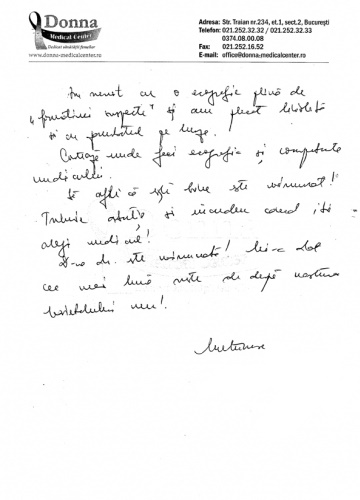 Donna
Medical Center
Dedicat sănătății femeilor
www.donna-medicalcenter.ro
Adresa: Str. Traian nr.234, et.1, sect.2, București
Telefon: 021.252.32.32 / 021.252.32.33
0374.08.00.08
Fax: 021.252.16.52
E-mail: office@donna-medicalcenter.ro
Am venit cu o ecografie plină de
"formațiuni suspecte" și am plecat liniștită
și cu zâmbetul pe buze.
Contează unde faci ecografia și competența
medicului.
Să afli că ești bine este minunat!
Trebuie atenție și încredere când îți
alegi medicul!
D-na dr. este minunată! Mi-a dat
cea mai bună veste de după nașterea
băiețelului meu!